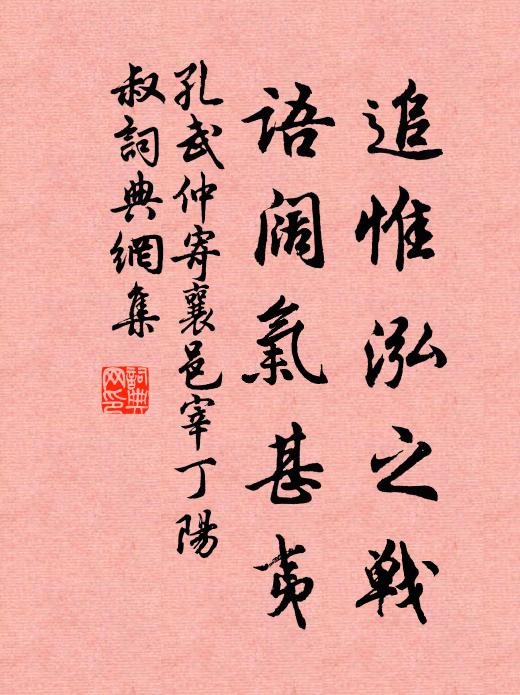 追惟泓之戦
語闊氣甚夷
孔武仲寄襄邑宰丁陽
叔詞典網集
詞典
网印